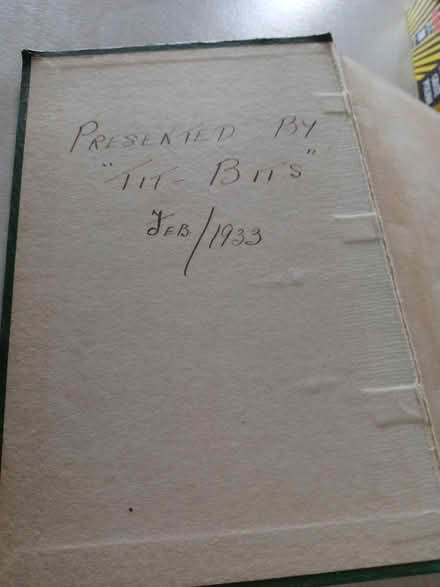 PRESENTED BY
"TIT-BITS"
FEB/1933